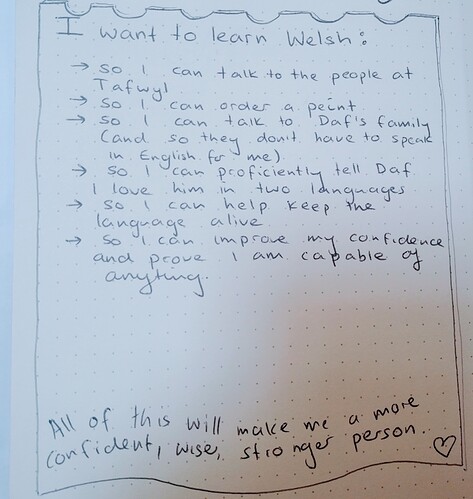 I want to learn Welsh:
→ so I can talk to the people at
Tafwyl
→ so I can order a peint
→ so I can talk to Daf's family
(and so they don't have to speak
in English for me)
→ so I can proficiently tell Daf
I love him in two languages
→ so I can help keep the
language alive
→ so I can improve my confidence
and prove I am capable of
anything.
All of this will make me a more
confident, wise, stronger person.